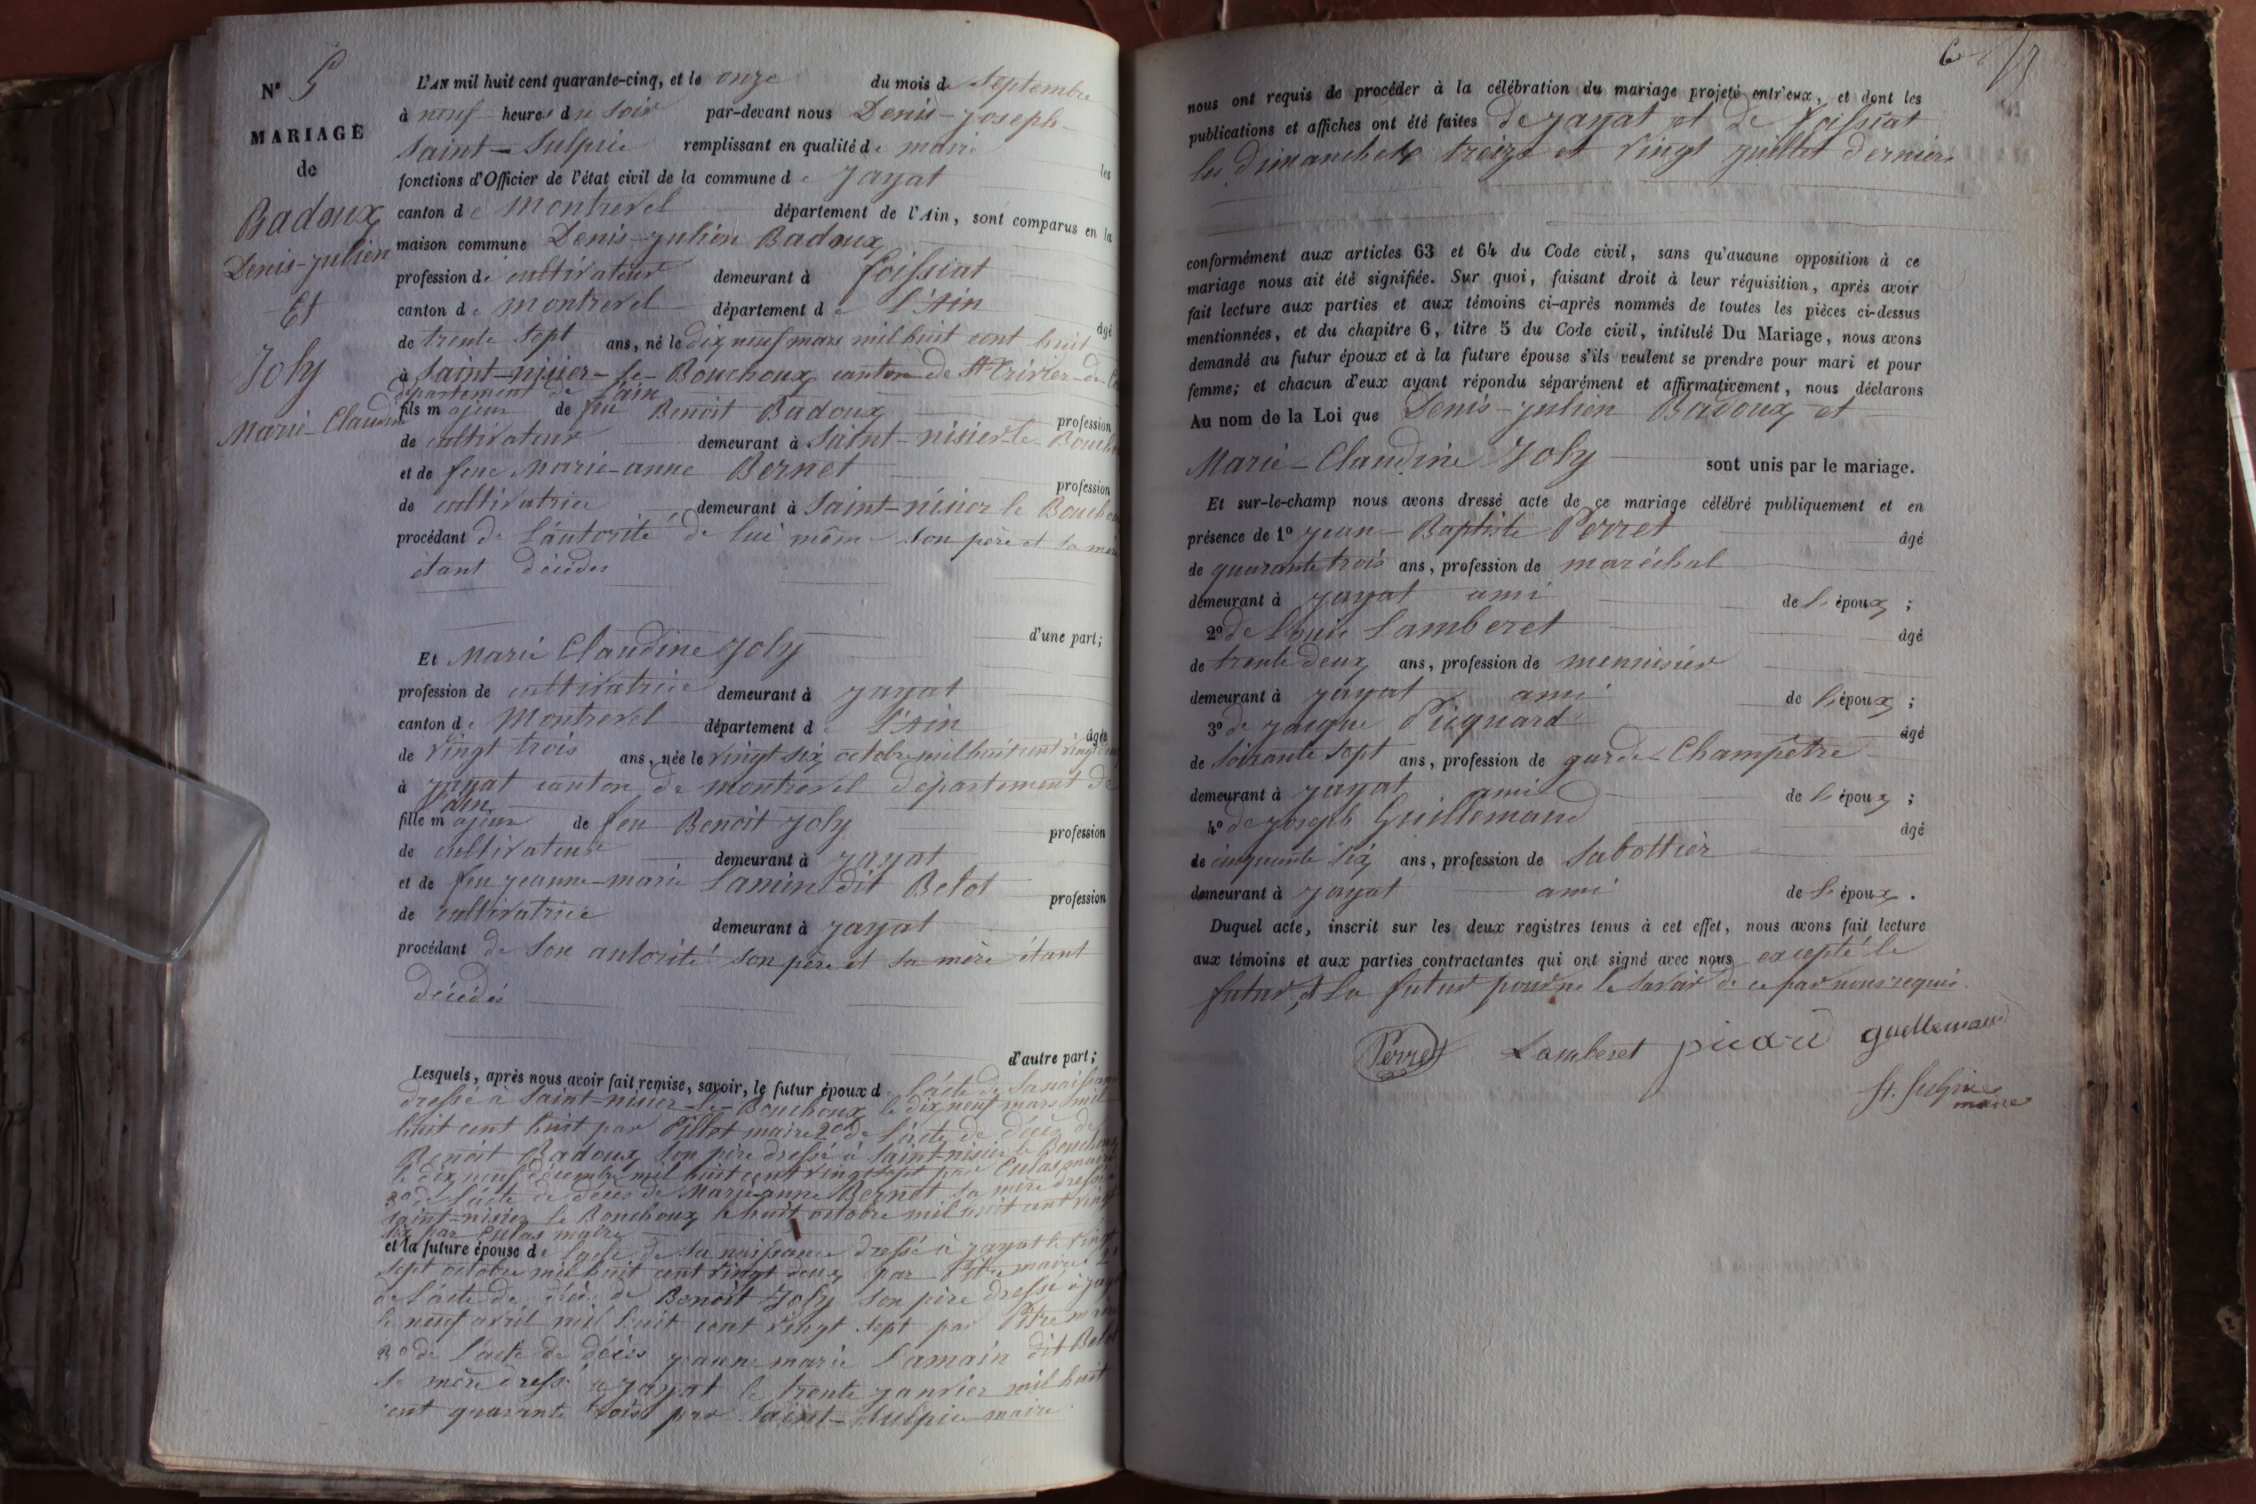 N° 5
MARIAGE
de
Badoux
Denis-julien
Et
Joly
Marie-Claudine
L'AN mil huit cent quarante-cinq, et le onze du mois de septembre
à neuf heures du soir par-devant nous Denis-joseph-
Saint-Sulpice remplissant en qualité de maire les
fonctions d'Officier de l'état civil de la commune de jayat
canton de montrevel département de l'Ain, sont comparus en la
maison commune Denis-julien Badoux
profession de cultivateur demeurant à foissiat
canton de montrevel département de l'Ain âgé
de trente sept ans, né le dix neuf mars mil huit cent huit
à Saint-nisier-le-Bouchoux canton de St Trivier-de-
département de l'ain
fils majeur de feu Benoit Badoux profession
de cultivateur demeurant à Saint-nisier-le-Bouch
et de feue marie-anne Bernet profession
de cultivatrice demeurant à Saint-nisier le Bouch
procédant de l'autorité de lui même son père et sa mère
étant décédés
d'une part;
Et Marie Claudine Joly
profession de cultivatrice demeurant à jayat
canton de Montrevel département de l'Ain âgée
de vingt trois ans, née le vingt six octobre mil huit cent vingt
à jayat canton de montrevel département de
l'ain
fille majeur de feu Benoit Joly profession
de cultivateur demeurant à jayat
et de feu jeanne-marie Lamin dit Belot profession
de cultivatrice demeurant à jayat
procédant de son autorité son père et sa mère étant
décédés
d'autre part;
Lesquels, après nous avoir fait remise, savoir, le futur époux de l'acte de sa naissance
dressé à Saint-nisier-le-Bouchoux le dix neuf mars mil
huit cent huit par Pillot maire 2° de l'acte de décès de
Benoit Badoux son père dressé à Saint-nisier le Bouchoux
le dix neuf décembre mil huit cent vingt sept par Culas maire
3° de l'acte de décès de Marie-anne Bernet sa mère dressé à
Saint-nisier le Bouchoux le huit octobre mil huit cent vingt
six par Culas maire
et la future épouse de l'acte de sa naissance dressé à jayat le vingt
sept octobre mil huit cent vingt deux par Pitre maire 2°
de l'acte de décès de Benoit Joly son père dressé à jayat
le neuf avril mil huit cent vingt sept par Pitre maire
3° de l'acte de décès jeanne marie Lamain dit Belot
sa mère dressé à jayat le trente janvier mil huit
cent quarante trois par Saint-Sulpice maire
6
nous ont requis de procéder à la célébration du mariage projeté entr'eux, et dont les
publications et affiches ont été faites de jayat et de foissiat
les dimanches treize et vingt juillet derniers
conformément aux articles 63 et 64 du Code civil, sans qu'aucune opposition à ce
mariage nous ait été signifiée. Sur quoi, faisant droit à leur réquisition, après avoir
fait lecture aux parties et aux témoins ci-après nommés de toutes les pièces ci-dessus
mentionnées, et du chapitre 6, titre 5 du Code civil, intitulé Du Mariage, nous avons
demandé au futur époux et à la future épouse s'ils veulent se prendre pour mari et pour
femme; et chacun d'eux ayant répondu séparément et affirmativement, nous déclarons
Au nom de la Loi que Denis-julien Badoux et
Marie-Claudine Joly sont unis par le mariage.
Et sur-le-champ nous avons dressé acte de ce mariage célébré publiquement et en
présence de 1° jean-Baptiste Perret âgé
de quarante trois ans, profession de maréchal
demeurant à jayat ami de l'époux ;
2° de Louis Lamberet âgé
de trente deux ans, profession de menuisier
demeurant à jayat ami de l'époux ;
3° de jacque Picquard âgé
de soixante sept ans, profession de garde-Champetre
demeurant à jayat ami de l'époux ;
4° de joseph Guillemaud âgé
de cinquante six ans, profession de Sabottier
demeurant à jayat ami de l'époux .
Duquel acte, inscrit sur les deux registres tenus à cet effet, nous avons fait lecture
aux témoins et aux parties contractantes qui ont signé avec nous excepté le
futur et la futur pour ne le savoir de ce par nous requis
Perret Lamberet picard guillemaud
St. Sulpice
maire